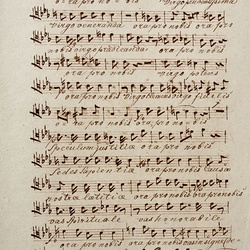 ora pro nobis Virgo prudentissima
Virgo veneranda ora pro nobis ora pro
nobis virgo praedicanda ora pro nobis
ora pro nobis virgo potens
ora pro nobis virgo clemens virgo fidelis
ora pro nobis ora pro nobis
Speculum justitiae ora pro nobis
Sedes sapientiae ora pro nobis causa
nostrae laetitiae ora pro nobis ora pro nobis
vas spirituale vas honorabile
ora pro nobis ora pro nobis vas insigne